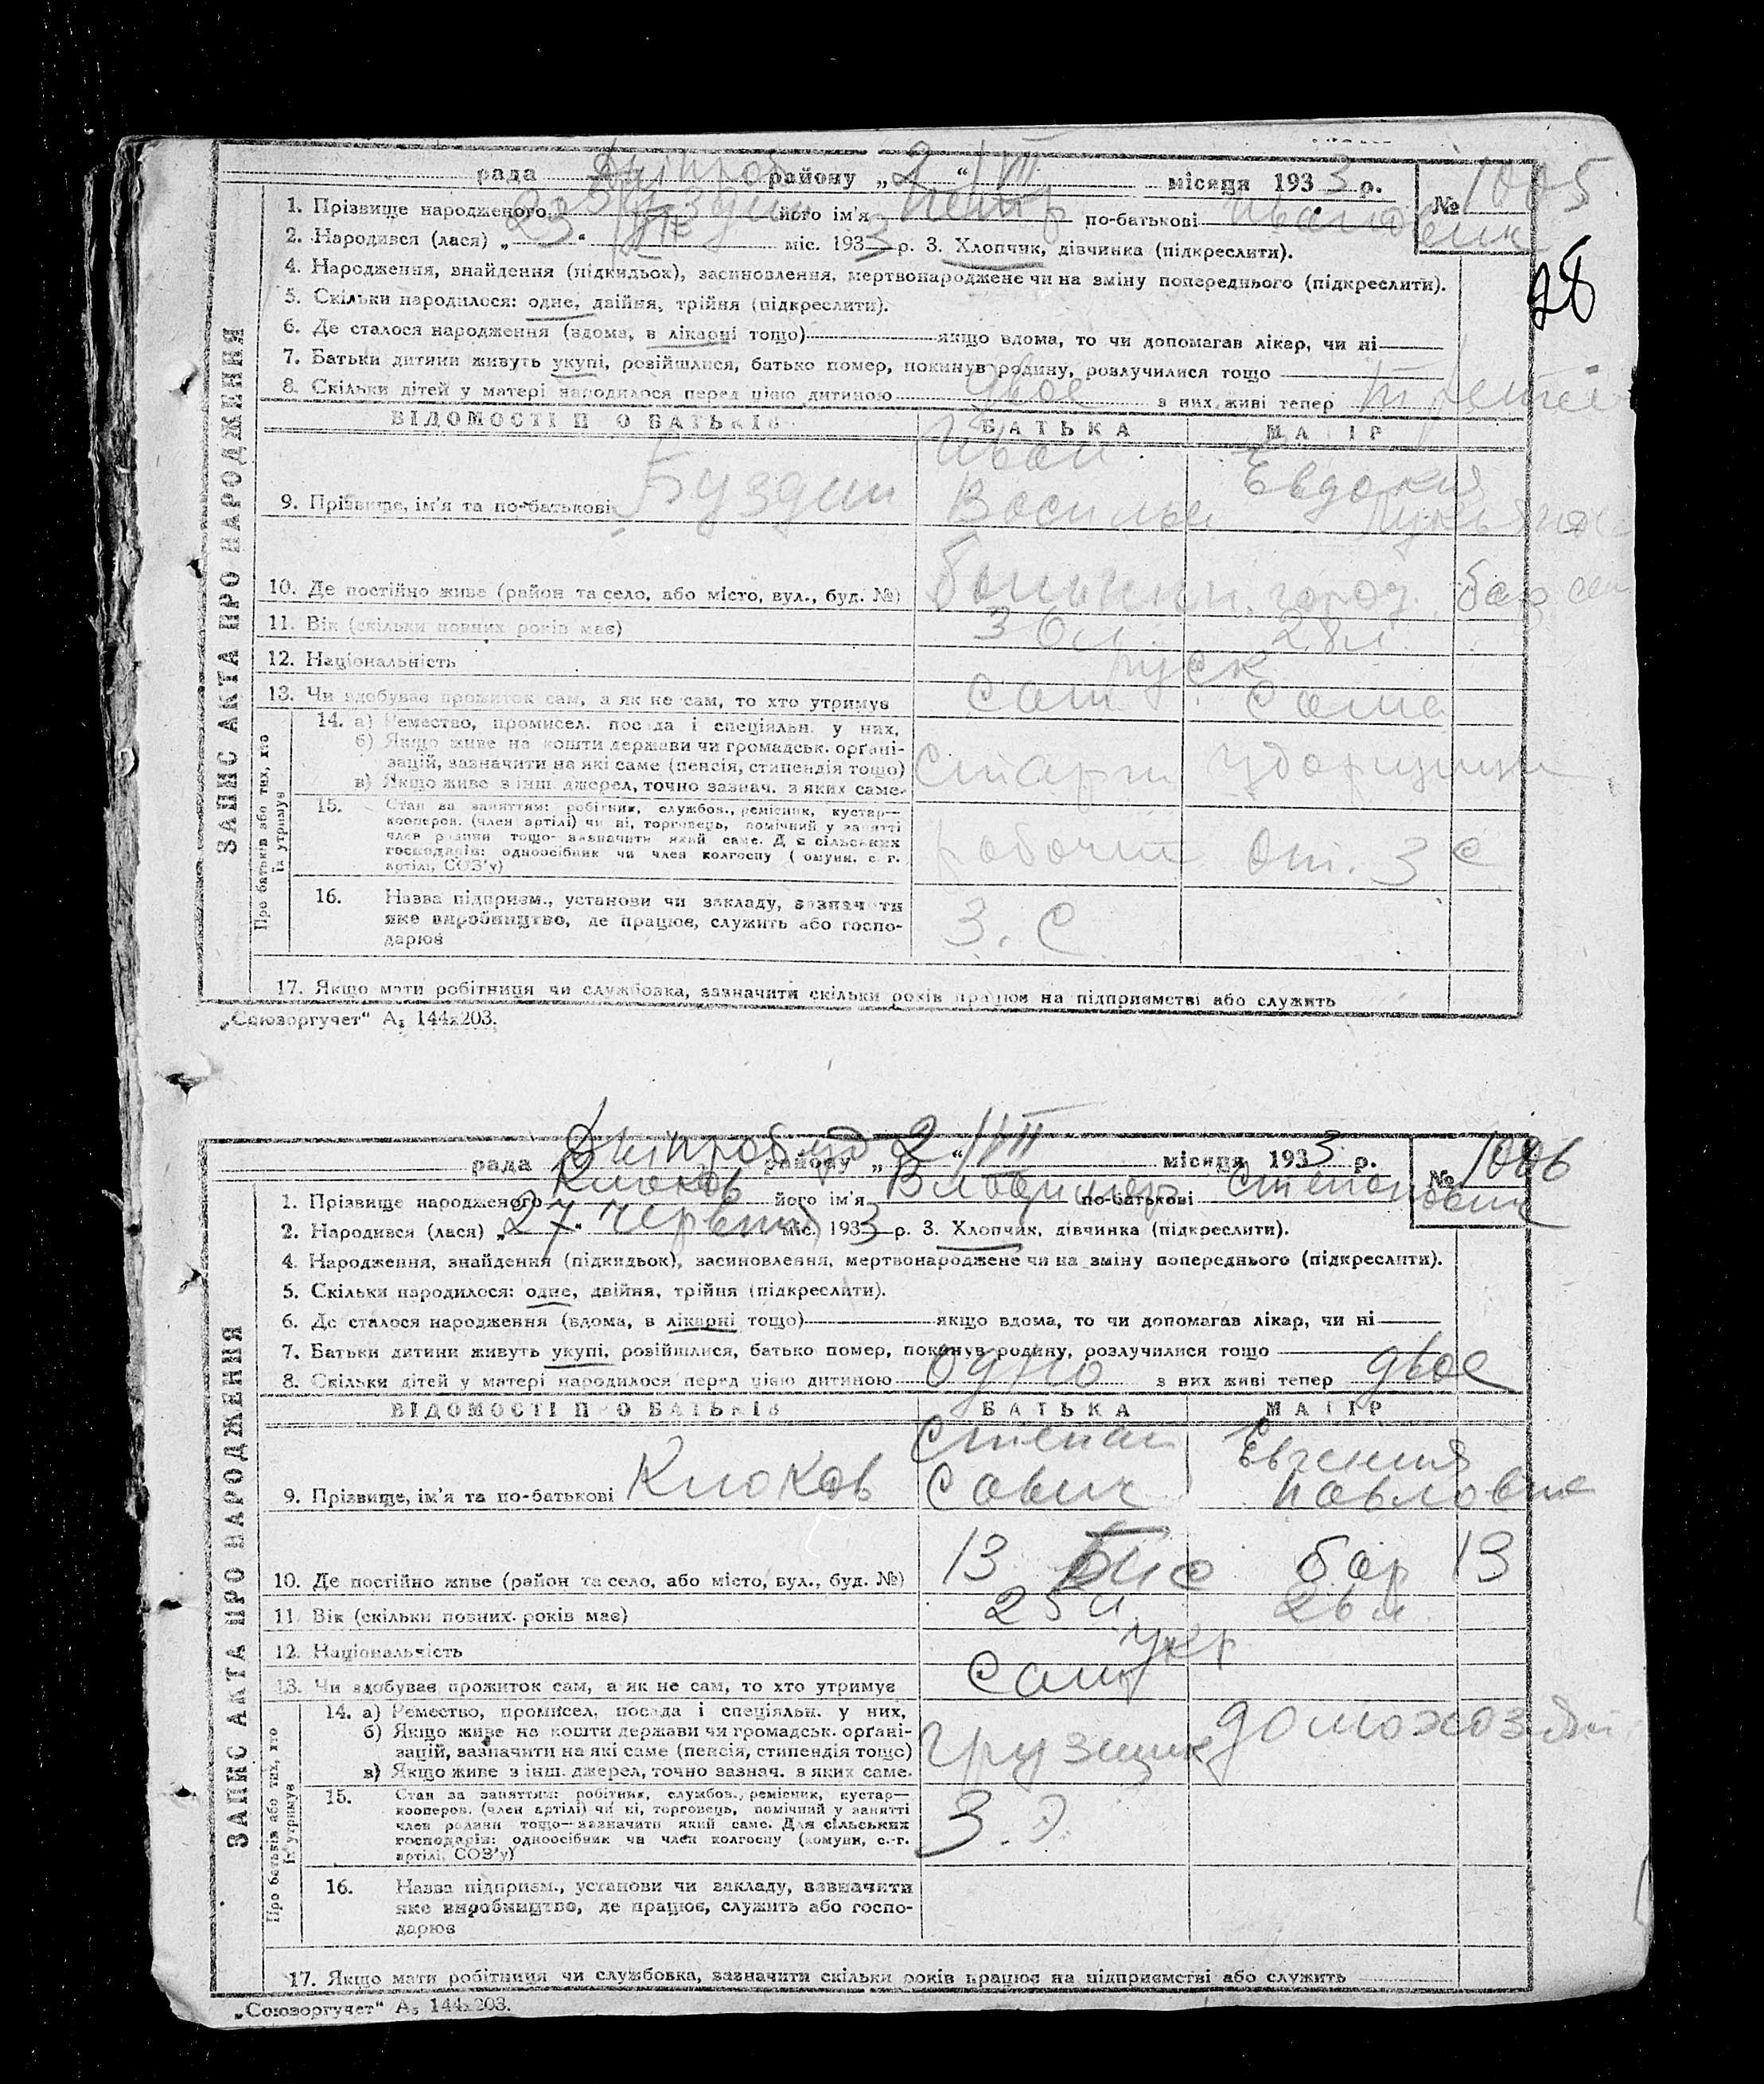 рада Дніпроб району „2“ VII місяця 1933 р. № 1005
1. Прізвище народженого Буздин його ім'я Петр по-батькові Иванович
2. Народився (лася) „23“ міс. 1933 р. 3. Хлопчик, дівчинка (підкреслити).
28
4. Народження, знайдення (підкидьок), засиновлення, мертвонароджене чи на зміну попереднього (підкреслити).
5. Скільки народилося: одне, двійня, трійня (підкреслити).
6. Де сталося народження (вдома, в лікарні тощо) якщо вдома, то чи допомагав лікар, чи ні
7. Батьки дитини живуть укупі, розійшлися, батько помер, покинув родину, розлучилися тощо
8. Скільки дітей у матері народилося перед цією дитиною двое з них живі тепер
ВІДОМОСТІ ПРО БАТЬКІВ БАТЬКА МАТІР
Иван Евдокия
9. Прізвище, ім'я та по-батькові Буздин
10. Де постійно живе (район та село, або місто, вул., буд. №)
11. Вік (скільки повних років має) 36 л. 28 л
12. Національність руск
13. Чи здобуває прожиток сам, а як не сам, то хто утримує сам сама
14. а) Ремество, промисел, посада і спеціяльн. у них,
б) Якщо живе на кошти держави чи громадськ. орґані-
зацій, зазначити на які саме (пенсія, стипендія тощо)
в) Якщо живе з інш. джерел, точно зазнач. з яких саме. уборщица
15. Стан за заняттям: робітник, службов., ремісник, кустар—
кооперов. (член артілі) чи ні, торговець, помічний у занятті
член родини тощо—зазначити який саме. Для сільських
господарів: одноосібник чи член колгоспу (комуни, с.-г.
артілі, СОЗ'у) рабочий
16. Назва підприєм., установи чи закладу, зазначити
яке виробництво, де працює, служить або госпо-
дарює З. С
17. Якщо мати робітниця чи службовка, зазначити скільки років працює на підприємстві або служить
ЗАПИС АКТА ПРО НАРОДЖЕННЯ
Про батьків або тих, хто їх утримує
„Союзоргучет“ А₅ 144х203.
рада Дніпробуд району „2“ VII місяця 1933 р. № 1006
1. Прізвище народженого Клюков його ім'я Владимир по-батькові Степанович
2. Народився (лася) „27“ червня міс. 1933 р. 3. Хлопчик, дівчинка (підкреслити).
4. Народження, знайдення (підкидьок), засиновлення, мертвонароджене чи на зміну попереднього (підкреслити).
5. Скільки народилося: одне, двійня, трійня (підкреслити).
6. Де сталося народження (вдома, в лікарні тощо) якщо вдома, то чи допомагав лікар, чи ні
7. Батьки дитини живуть укупі, розійшлися, батько помер, покинув родину, розлучилися тощо
8. Скільки дітей у матері народилося перед цією дитиною одно з них живі тепер двое
ВІДОМОСТІ ПРО БАТЬКІВ БАТЬКА МАТІР
Степан Евгения
9. Прізвище, ім'я та по-батькові Клюков Савич Павловна
10. Де постійно живе (район та село, або місто, вул., буд. №) 13 бар 13
11. Вік (скільки повних років має) 25 л. 26 л.
12. Національність укр
13. Чи здобуває прожиток сам, а як не сам, то хто утримує сам
14. а) Ремество, промисел, посада і спеціяльн. у них,
б) Якщо живе на кошти держави чи громадськ. орґані-
зацій, зазначити на які саме (пенсія, стипендія тощо)
в) Якщо живе з інш. джерел, точно зазнач. з яких саме. грузщик домохозяй
15. Стан за заняттям: робітник, службов., ремісник, кустар—
кооперов. (член артілі) чи ні, торговець, помічний у занятті
член родини тощо—зазначити який саме. Для сільських
господарів: одноосібник чи член колгоспу (комуни, с.-г.
артілі, СОЗ'у)
16. Назва підприєм., установи чи закладу, зазначити
яке виробництво, де працює, служить або госпо-
дарює
17. Якщо мати робітниця чи службовка, зазначити скільки років працює на підприємстві або служить
ЗАПИС АКТА ПРО НАРОДЖЕННЯ
Про батьків або тих, хто їх утримує
„Союзоргучет“ А₅ 144х203.